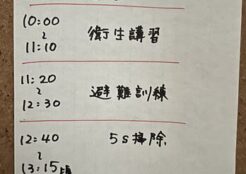 10:00
~
11:10
衛生講習
11:20
~
12:30
避難訓練
12:40
~
13:15頃
5S掃除